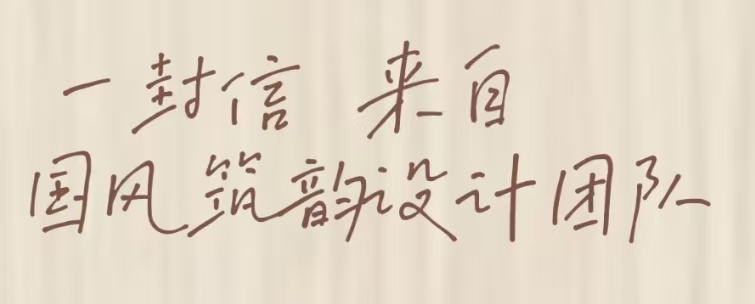 一封信 来自
国风筑韵设计团队